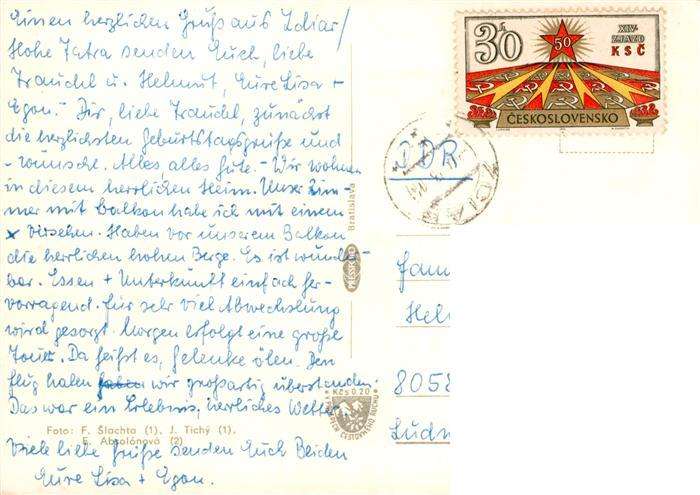 Einen herzlichen Gruß aus Zdiar/
Hohe Tatra senden Euch, liebe
Traudel u. Helmut, Eure Lisa +
Egon. Dir, liebe Traudel, zunächst
die herzlichsten Geburtstagsgrüße und
-wünsche. Alles, alles Gute. - Wir wohnen
in diesem herrlichen Heim. Unser Zim-
mer mit Balkon habe ich mit einem
x versehen. Haben vor unserem Balkon
die herrlichen hohen Berge. Es ist wunder-
bar. Essen + Unterkunft einfach her-
vorragend. Für sehr viel Abwechslung
wird gesorgt. Morgen erfolgt eine große
Tour. Da heißt es, Gelenke ölen. Den
Flug haben wir großartig überstanden.
Das war ein Erlebnis, herrliches Wetter.
Foto: F. Šlachta (1), J. Tichý (1),
E. Absolónová (2)
Viele liebe Grüße senden Euch Beiden
Eure Lisa + Egon.
Bratislava
PRESSFOTO
Kčs 0.20
30
50
XIV.
ZJAZD
KSČ
ČESKOSLOVENSKO
DDR
ZDIAR
Fam
Hel
8058
Ludw